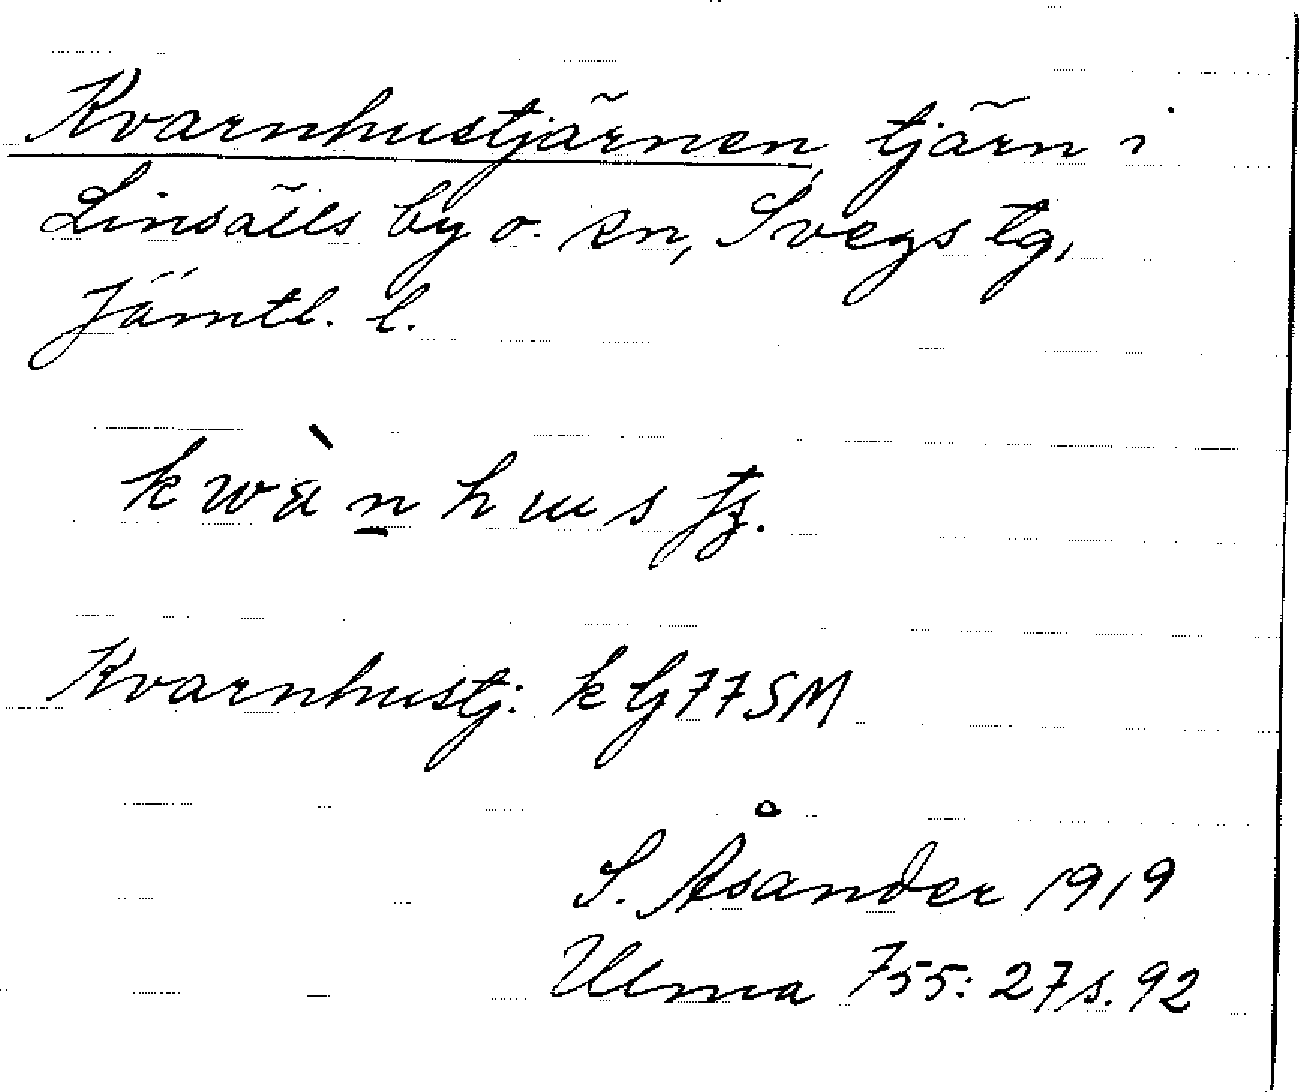 Kvarnhustjärnen, tjärn i
Linsälls by o. sn, Svegs tg,
Jämtl. l.
kwànhus tj.
Kvarnhustj: k bj 77 SM
S. Åsander 1919
Ulma 755: 27 s. 92